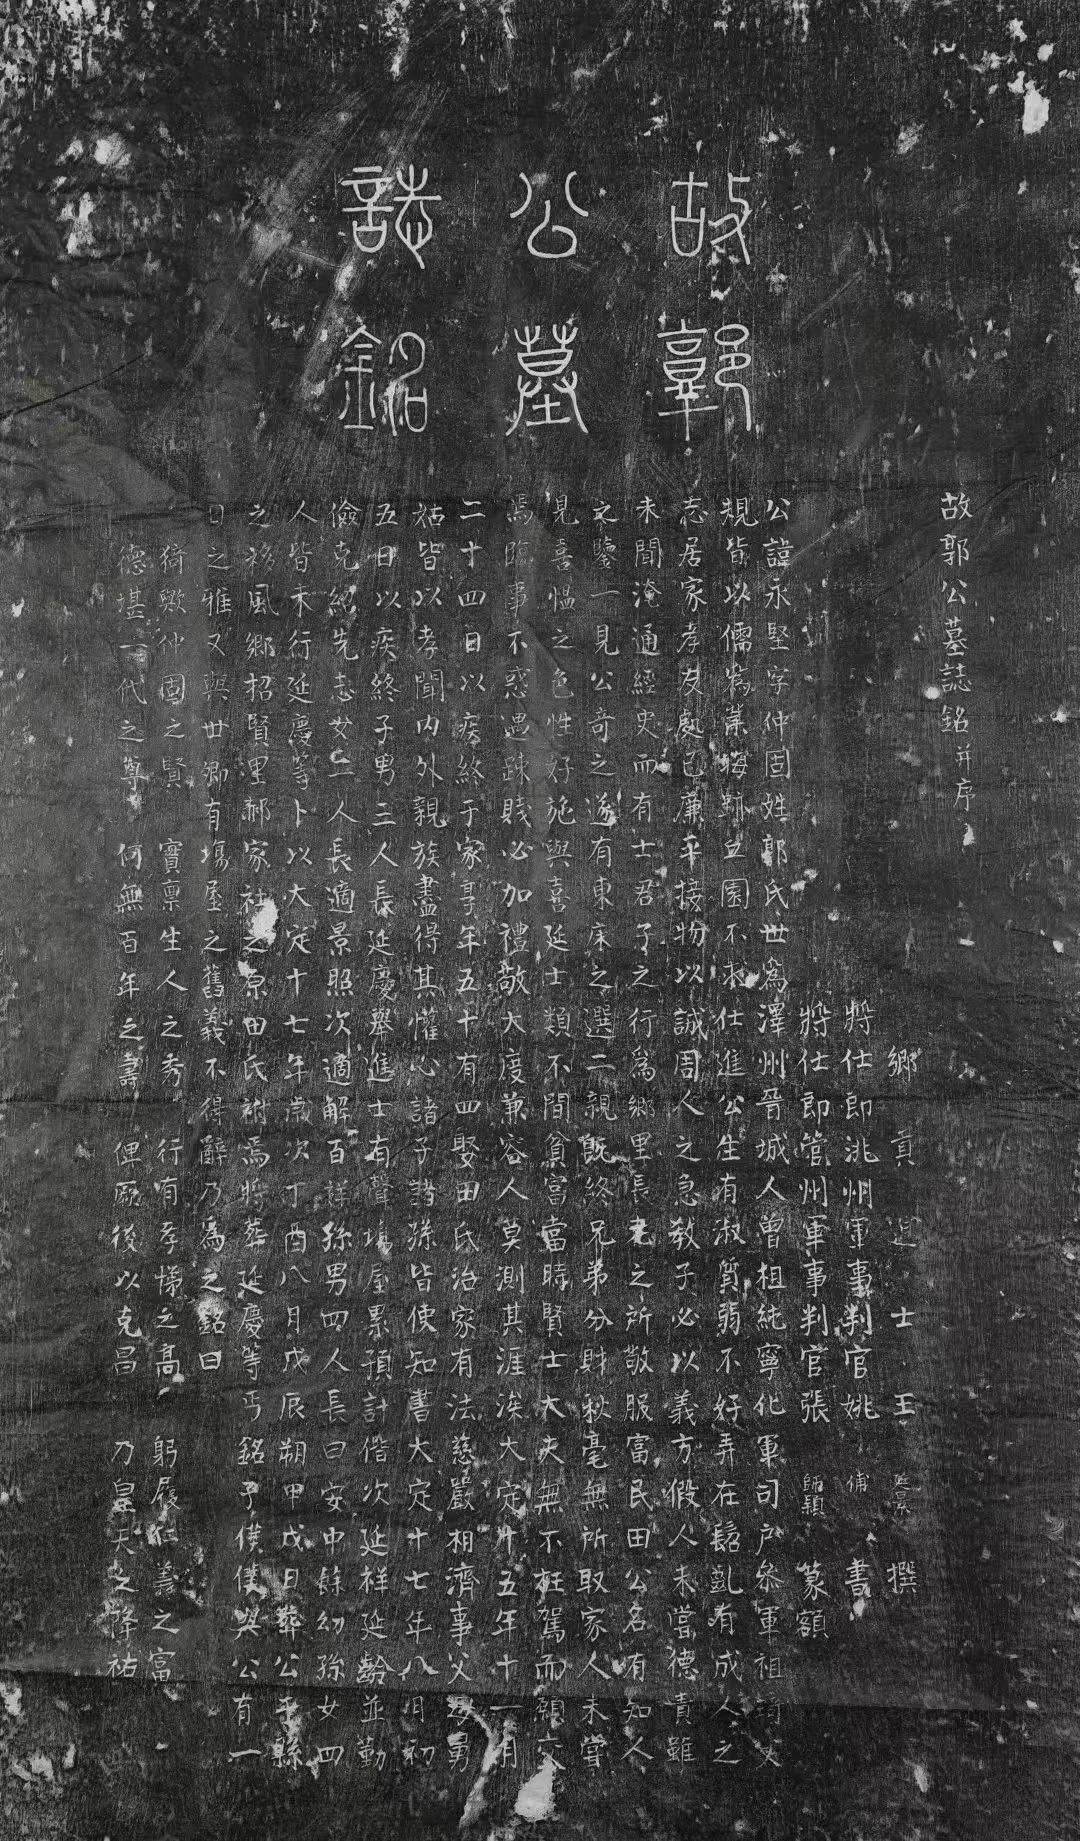 故郭
公墓
誌銘
故郭公墓誌銘并序
鄉貢進士王 撰
將仕郎洮州軍事判官姚 書
將仕郎管州軍事判官張師穎篆額
公諱永堅字仲固姓郭氏世為澤州晉城人曾祖純寧化軍司户叅軍祖琦父
規皆以儒為業晦跡丘園不求仕進公生有淑質弱不好弄在髫齓有成人之
志居家孝友處己廉平接物以誠周人之急教子必以義方假人未嘗德責雖
未聞淹通經史而有士君子之行為鄉里長老之所敬服富民田公名有知人
之鑒一見公奇之遂有東床之選二親既終兄弟分財秋毫無所取家人未嘗
見喜慍之色性好施與喜延士類不間貧富當時賢士大夫無不枉駕而願交
焉臨事不惑遇疎賤必加禮敬大度兼容人莫測其涯涘大定十五年十一月
二十四日以疾終于家享年五十有四娶田氏治家有法慈嚴相濟事父母舅
姑皆以孝聞内外親族盡得其懽心諸子諸孫皆使知書大定十七年八月初
五日以疾終子男三人長延慶舉進士有聲場屋累預計偕次延祥延齡並勤
儉克紹先志女二人長適景照次適解百祥孫男四人長曰安中餘幼孫女四
人皆未行延慶等卜以大定十七年歲次丁酉八月戊辰朔甲戌日葬公于縣
之移風鄉招賢里郝家社之原田氏祔焉將葬延慶等丐銘予僕僕與公有一
日之雅又與世卿有場屋之舊義不得辭乃為之銘曰
猗歟仲固之賢 實禀生人之秀 行有孝悌之高 躬履仁義之富
德堪一代之尊 何無百年之壽 俾厥後以克昌 乃皇天之降祐